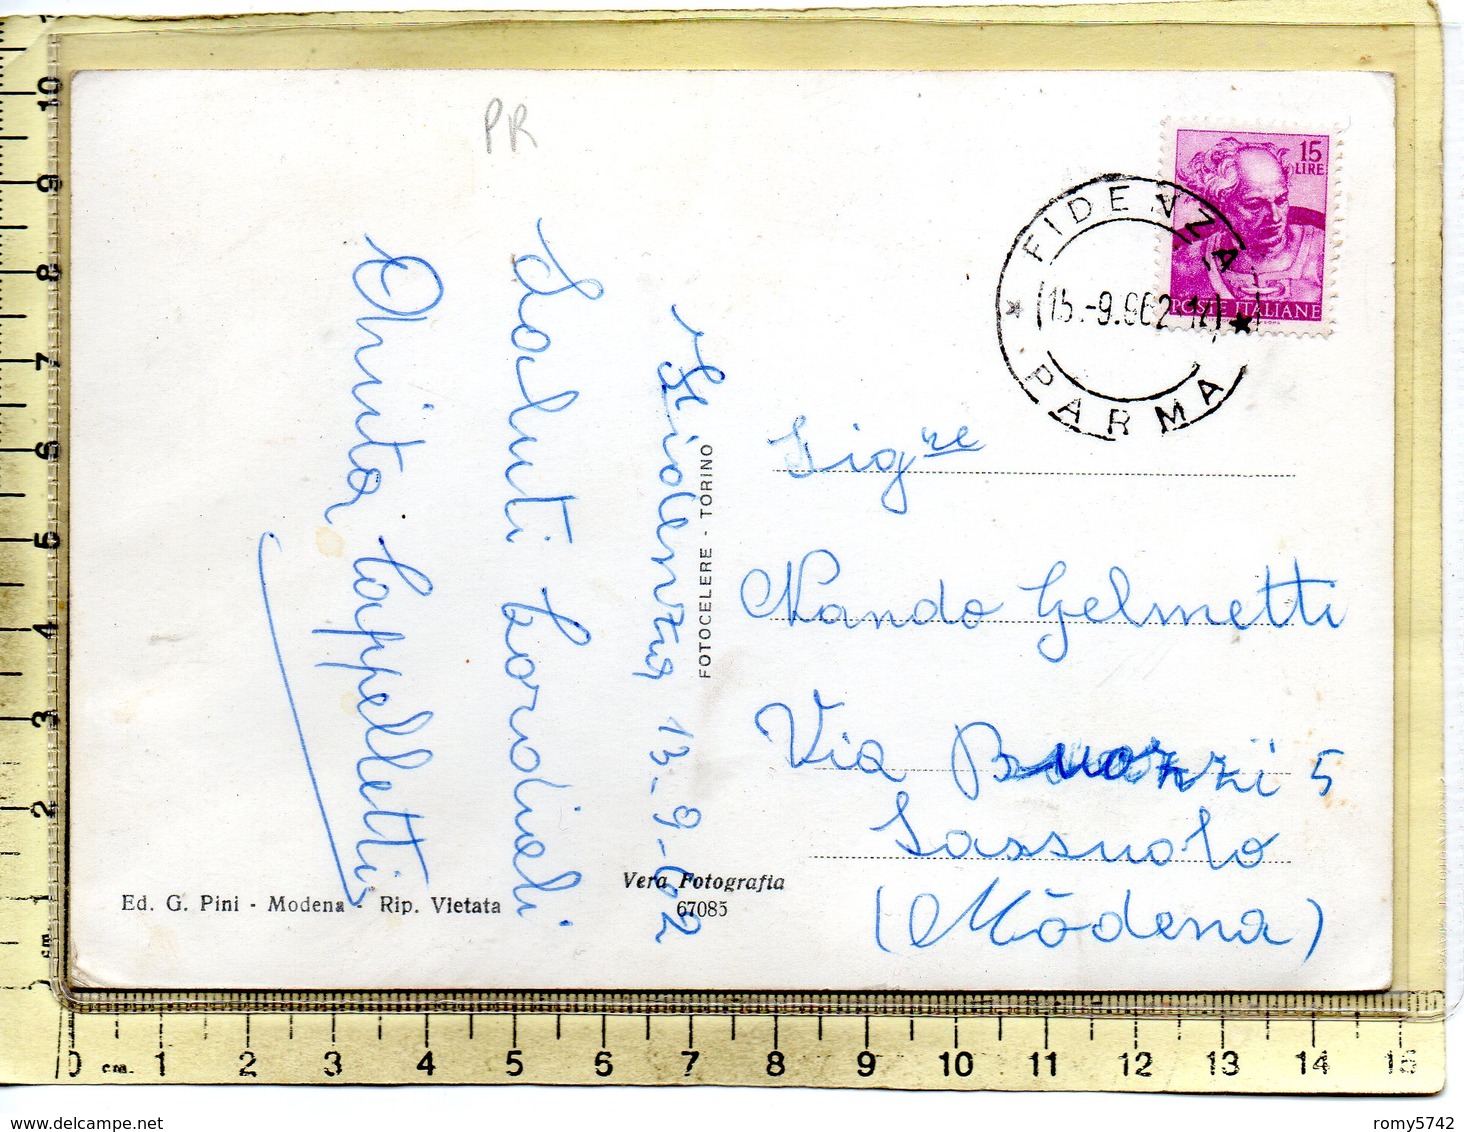 PR
15
LIRE
POSTE ITALIANE
FIDENZA
15.-9.962.12
PARMA
Fidenza 13-9-62
Saluti Cordiali
Anita Cappelletti
Sig.re
Nando Gelmetti
Via Buozzi 5
Sassuolo
(Modena)
FOTOCELERE - TORINO
Vera Fotografia
67085
Ed. G. Pini - Modena - Rip. Vietata
10
9
8
7
6
5
4
3
2
1
cm
0 cm. 1 2 3 4 5 6 7 8 9 10 11 12 13 14 15
www.delcampe.net
romy5742